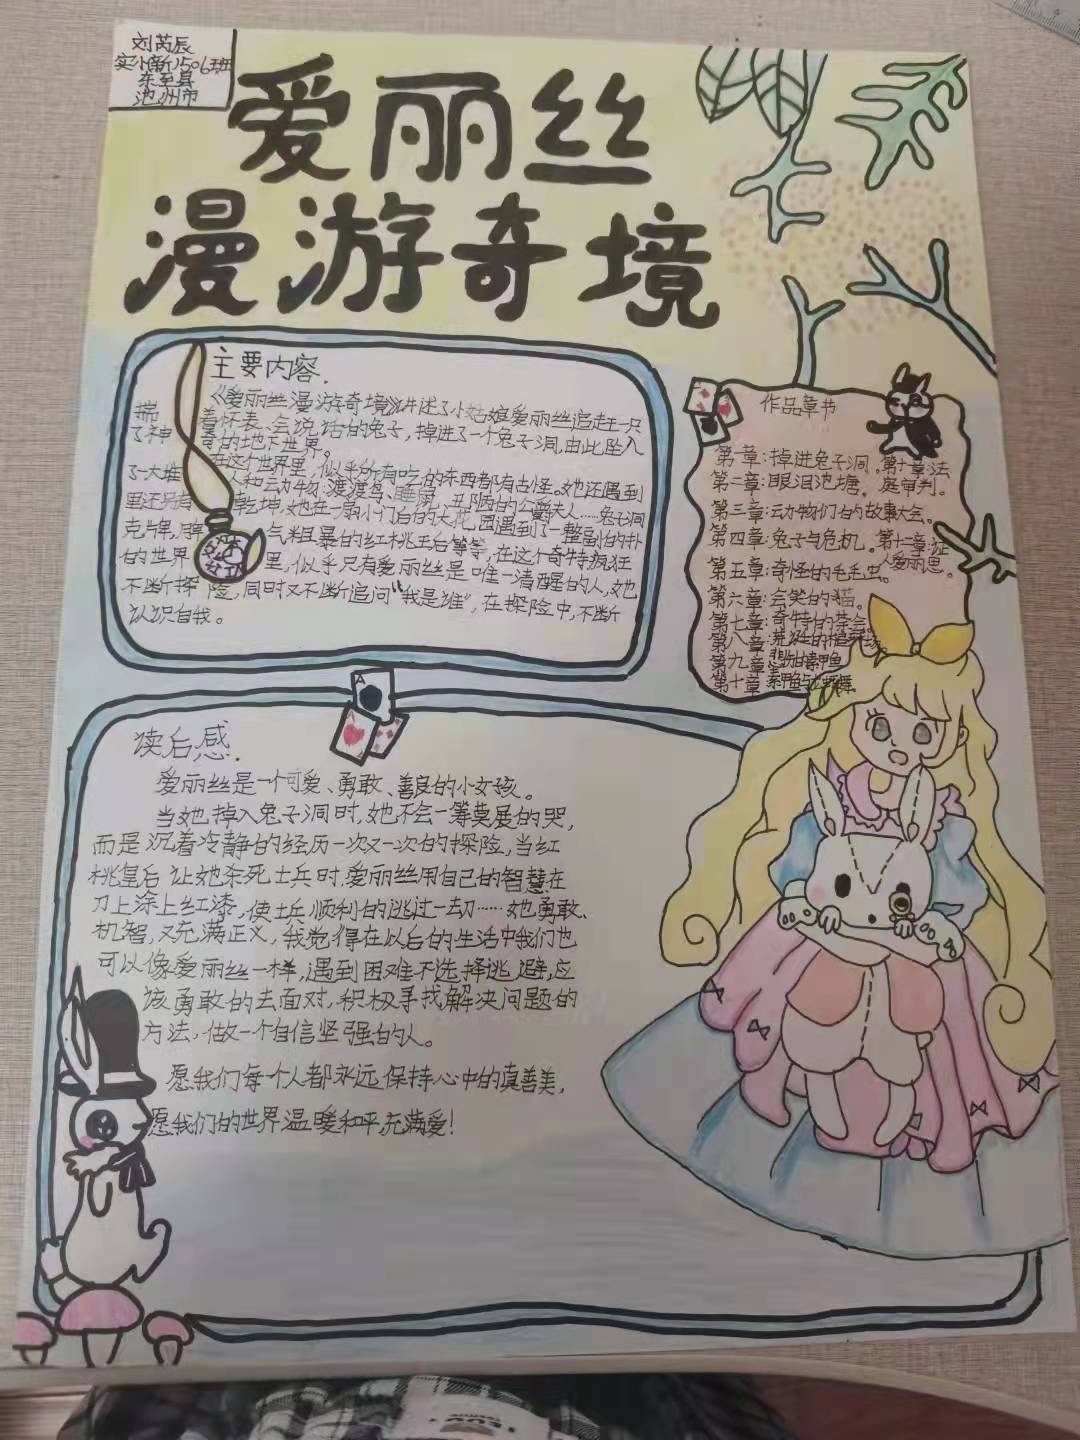 刘芮辰
实小新1506班
东至县
池州市
爱丽丝
漫游奇境
主要内容.
《爱丽丝漫游奇境》讲述了小姑娘爱丽丝追赶一只
揣着怀表、会说话的兔子,掉进了一个兔子洞,由此坠入
了神奇的地下世界。
在这个世界里,似乎所有吃的东西都有古怪。她还遇到
了一大堆人和动物:渡渡鸟、睡鼠、丑陋的公爵夫人……兔子洞
里还另有乾坤,她在一扇小门后的大花园遇到了一整副的扑
克牌,脾气粗暴的红桃王后等等,在这个奇特疯狂
的世界里,似乎只有爱丽丝是唯一清醒的人,她
不断探险,同时又不断追问“我是谁”,在探险中,不断
认识自我。
作品章节
第一章:掉进兔子洞。第十一章:法
第二章:眼泪池塘。庭审判。
第三章:动物们的故事大会。
第四章:兔子与危机。第十二章:证
第五章:奇怪的毛毛虫。人爱丽思。
第六章:会笑的猫。
第七章:奇特的茶会
第八章:荒诞的槌球场。
第九章:悲伤的素甲鱼
第十章:素甲鱼与龙虾舞
读后感.
爱丽丝是一个可爱、勇敢、善良的小女孩。
当她掉入兔子洞时,她不会一筹莫展的哭,
而是沉着冷静的经历一次又一次的探险,当红
桃皇后让她杀死士兵时,爱丽丝用自己的智慧在
刀上涂上红漆,使士兵顺利的逃过一劫……她勇敢、
机智,又充满正义,我觉得在以后的生活中我们也
可以像爱丽丝一样,遇到困难不选择逃避,应
该勇敢的去面对,积极寻找解决问题的
方法,做一个自信坚强的人。
愿我们每个人都永远保持心中的真善美,
愿我们的世界温暖和平,充满爱!
A